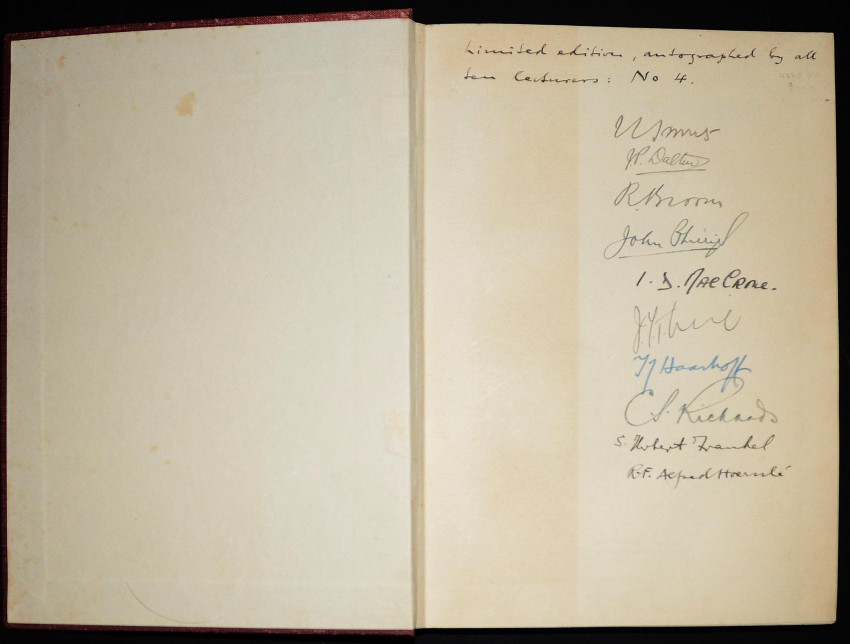 Limited edition, autographed by all
ten lecturers: No 4.
J.P. Dalton
R. Broom
John Phillips
I. D. MacCrone.
TJ Haarhoff
C.S. Richards
S. Herbert Frankel
R.F. Alfred Hoernlé